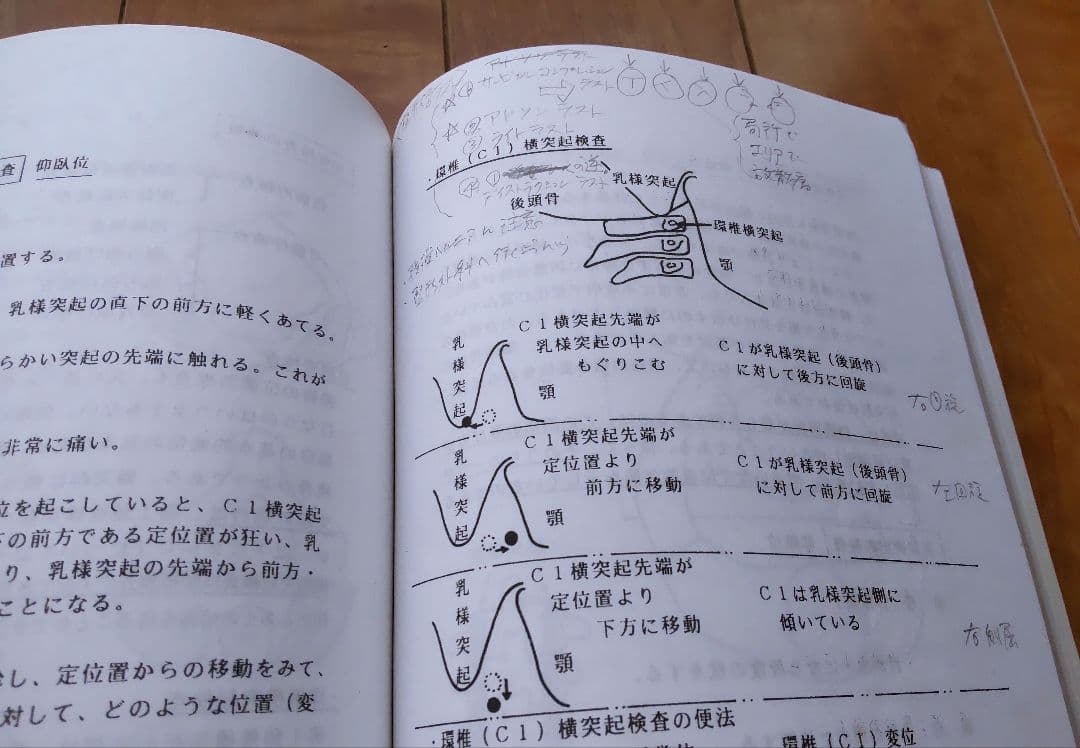 査 仰臥位
置する。
乳様突起の直下の前方に軽くあてる。
らかい突起の先端に触れる。これが
非常に痛い。
位を起こしていると、C1横突起
下の前方である定位置が狂い、乳
り、乳様突起の先端から前方・
ことになる。
し、定位置からの移動をみて、
対して、どのような位置(変
サービカルコンプレッション
テスト
② アドソンテスト
③ ライトテスト
局所で
エリアで
放散痛
・環椎(C1)横突起検査
① の逆
ディストラクションテスト
乳様突起
後頭骨
環椎横突起
顎
注意
乳様突起
C1横突起先端が
乳様突起の中へ
もぐりこむ
顎
C1が乳様突起(後頭骨)
に対して後方に回旋
右回旋
乳様突起
C1横突起先端が
定位置より
前方に移動
顎
C1が乳様突起(後頭骨)
に対して前方に回旋
左回旋
乳様突起
C1横突起先端が
定位置より
下方に移動
顎
C1は乳様突起側に
傾いている
右側屈
・環椎(C1)横突起検査の便法
環椎(C1)変位